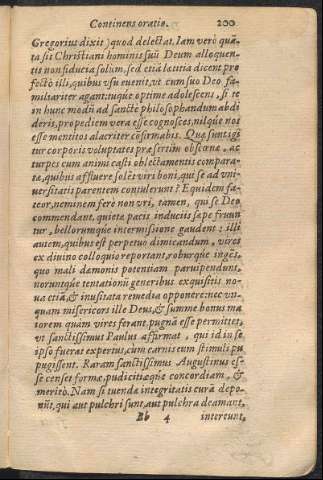 Continens oratio. 200
Gregorius dixit) quod delectat. Iam verò quā-
ta sit Christiani hominis suū Deum alloquen-
tis non fiducia solùm, sed etiā lætitia dicent pro
fectò illi, quibus vsu euenit, vt cum suo Deo fa-
miliariter agant: tuque optime adolescens, si te
in hunc modū ad sanctè philosophandum abdi
deris, propediem vera esse cognosces, nilque nos
esse mentitos alacriter cōfirmabis. Quæ sunt igi
tur corporis voluptates præsertim obscœnæ, ac
turpes cum animi casti oblectamentis compara-
tæ, quibus affluere solēt viri boni, qui se ad vni-
uersitatis parentem contulerunt? Equidem fa-
teor, neminem ferè non vri, tamen, qui se Deo
commendant, quieta pacis induciis sæpe fruun
tur, bellorumque intermissione gaudent: illi
autem, quibus est perpetuo dimicandum, vires
ex diuino colloquio reportant, roburque ingēs,
quo mali dæmonis potentiam paruipendunt,
noruntque tentationū generibus exquisitis no-
ua etiā, & inusitata remedia opponere: nec vn-
quam misericors ille Deus, & summè bonus ma
iorem quam vires ferant, pugnā esse permittet,
vt sanctissimus Paulus affirmat, qui id in se
ipso fuerat expertus, cum carnis eum stimuli pu
pugissent. Raram sanctissimus Augustinus es-
se censet formæ, pudicitiæque concordiam, &
meritò. Nam si tuendæ integritatis curā depo-
nūt, qui aut pulchri sunt, aut pulchra deamant,
Bb 4 intereunt,